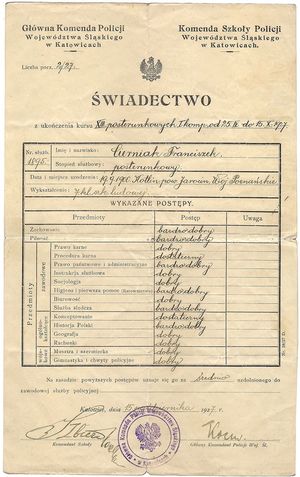 Główna Komenda Policji
Województwa Śląskiego
w Katowicach
Komenda Szkoły Policji
Województwa Śląskiego
w Katowicach.
Liczba porz. 2/27.
ŚWIADECTWO
z ukończenia kursu XIII posterunkowych I komp. od 25.IV. do 15.X.1927.
Nr. służb. 1895.
Imię i nazwisko: Cierniak Franciszek
Stopień służbowy: posterunkowy
Data i miejsce urodzenia: 19.9.1900. Kotlin, pow. Jarocin, Woj. Poznańskie
Wykształcenie: 7 kl. szk. ludowej.
WYKAZANE POSTĘPY.
Przedmioty Postęp Uwaga
Zachowanie bardzo dobry
Pilność bardzo dobry
Przedmioty
zawodowe
Prawo karne dobry
Procedura karna dostateczny
Prawo państwowe i administracyjne bardzo dobry
Instrukcja służbowa dobry
Socjologja dobry
Higjena i pierwsza pomoc (Ratownictwo) bardzo dobry
Biurowość dobry
Służba śledcza bardzo dobry
Konceptowanie dostateczny
Historja Polski bardzo dobry
Geografja dobry
Rachunki dobry
Musztra i szermierka dobry
Gimnastyka i chwyty policyjne dobry
Na zasadzie powyższych postępów uznaje się go za średnio uzdolnionego do
zawodowej służby policyjnej.
Katowice, dnia 15 października 1927. r.
Komendant Szkoły
Główny Komendant Policji Woj. Śl.